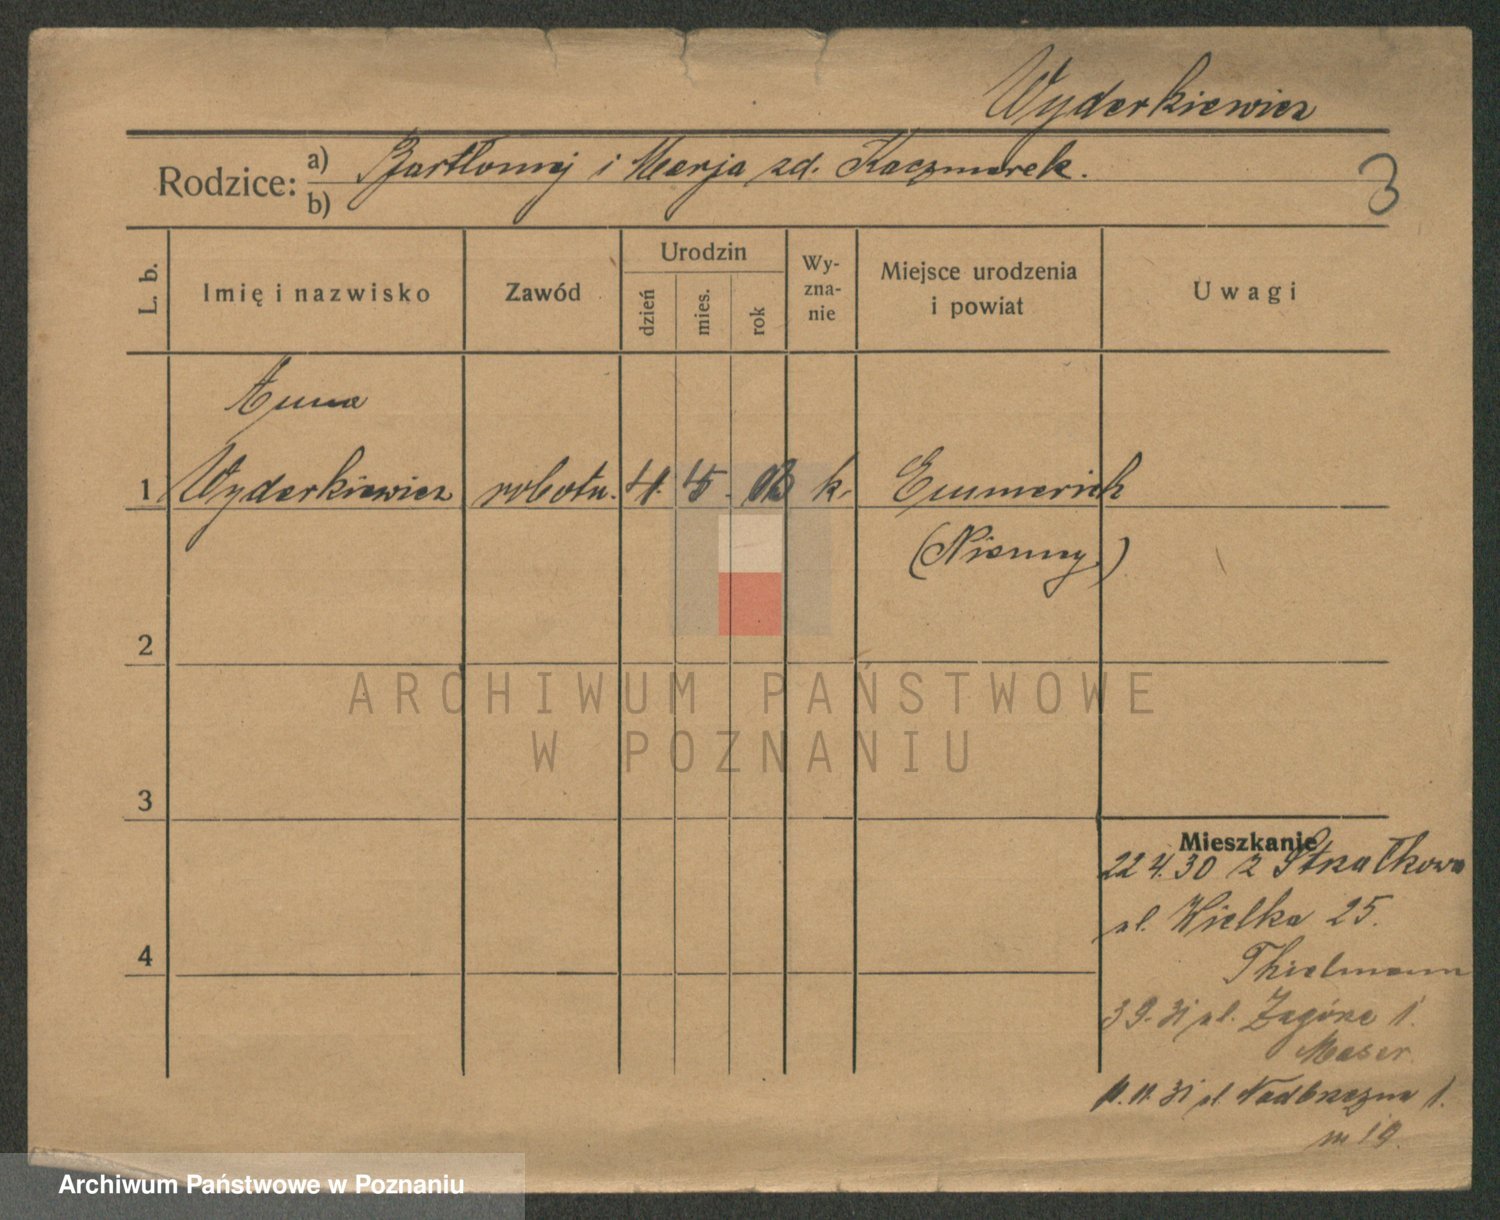 Wyderkiewicz
Rodzice: a) Bartłomiej i Marja zd. Kaczmarek.
b)
3
L. b.
Imię i nazwisko
Zawód
Urodzin
dzień
mies.
rok
Wy-
zna-
nie
Miejsce urodzenia
i powiat
Uwagi
Anna
1 Wyderkiewicz robotn. 4. 5. 03 k. Emmerich
(Niemcy)
2
ARCHIWUM PAŃSTWOWE
W POZNANIU
3
Mieszkanie
22 4. 30 z Strzałkowa
ul. Wielka 25.
Thielmann
4
3 9. 31 ul. Zagórze 1.
Maser
11. 11. 31 ul. Nadbrzeżna 1.
m 19.
Archiwum Państwowe w Poznaniu